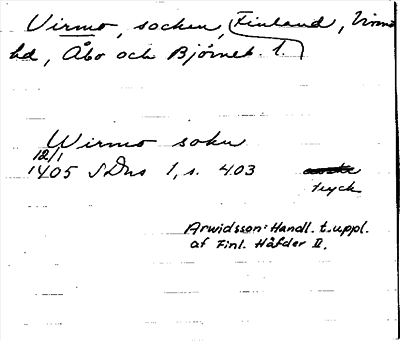 Virmo, socken, Finland, Virmo
hd, Åbo och Björneb. l.
Wirmo sokn
12/1
1405 SDns 1, s. 403
tryck
Arwidsson: Handl. t. uppl.
af Finl. Häfder II.